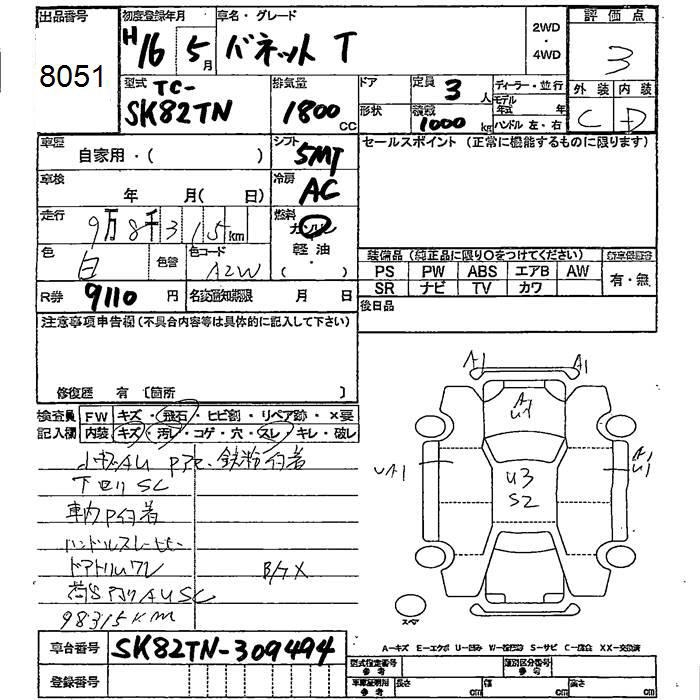 出品番号 初度登録年月 車名・グレード 評価点
8051 H16 5月 バネット T 2WD・4WD 3
型式 TC-SK82TN 排気量 1800CC ドア 定員 3人 ディーラー・並行 外装 内装
形状 積載 1000kg モデル年式 年 ハンドル 左・右 C D
車歴 自家用・( ) シフト 5MT セールスポイント (正常に機能するものに限ります)
車検 年 月( 日) 冷房 AC
走行 9万8千315km 燃料 ガソリン 軽油・( )
色 白 色替 色コード A2W 装備品 (純正品に限り○をつけてください)
PS PW ABS エアB AW 有・無
SR ナビ TV カワ
R券 9110円 名変通知期限 月 日 後日品
注意事項申告欄(不具合内容等は具体的に記入して下さい)
修復歴 有 〔箇所 〕
検査員 FW キズ・飛石・ヒビ割・リペア跡・×要
記入欄 内装 キズ・汚レ・コゲ・穴・スレ・キレ・破レ
小キズAU 鉄粉付着
下回りSC
車内P付着
ハンドルスレ
ドアトリムワレ
98315KM
A1 A1
A1
U1
UA1 A1
U1
U3
S2
スペア
A-キズ E-エクボ U-凹み W-補修跡 S-サビ C-腐食 XX-交換済
車台番号 SK82TN-309494 型式指定番号 参考 類別区分番号 参考
登録番号 車庫証明用 参考 長さ cm 幅 cm 高さ cm